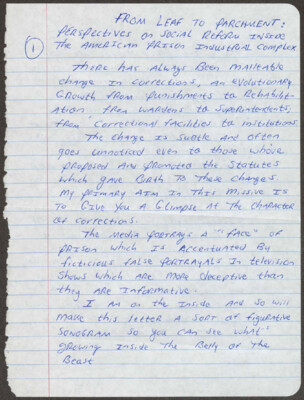 FROM LEAF TO PARCHMENT:
PERSPECTIVES ON SOCIAL REFORM INSIDE
THE AMERICAN PRISON INDUSTRIAL COMPLEX
1
THERE HAS ALWAYS BEEN MALLEABLE
CHANGE IN CORRECTIONS, AN EVOLUTIONARY
GROWTH FROM PUNISHMENTS TO REHABILIT-
ATION FROM WARDENS TO SUPERINTENDENTS,
FROM CORRECTIONAL FACILITIES TO INSTITUTIONS.
THE CHANGE IS SUBTLE AND OFTEN
GOES UNNOTICED EVEN TO THOSE WHOSE
PROPOSED AND PROMOTED THE STATUTES
WHICH GAVE BIRTH TO THESE CHANGES
MY PRIMARY AIM IN THIS MISSIVE IS
TO GIVE YOU A GLIMPSE AT THE CHARACTER
OF CORRECTIONS.
THE MEDIA PORTRAYS A "FACE" OF
PRISON WHICH IS ACCENTUATED BY
FICTICIOUS FALSE PORTRAYALS IN TELEVISION
SHOWS WHICH ARE MORE DECEPTIVE THAN
THEY ARE INFORMATIVE.
I AM ON THE INSIDE AND SO WILL
MAKE THIS LETTER A SORT OF FIGURATIVE
SONOGRAM SO YOU CAN SEE WHAT'S
GROWING INSIDE "THE BELLY OF THE
BEAST